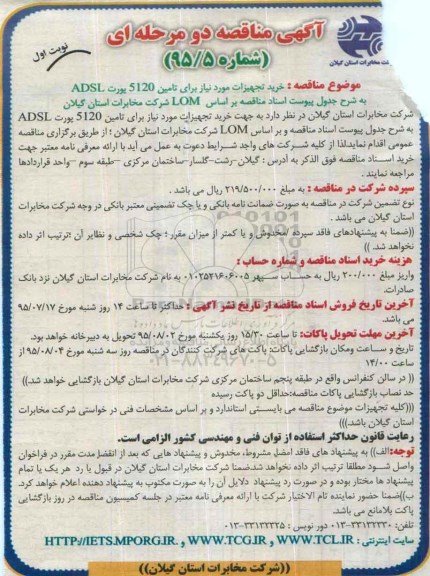 آگهی مناقصه دو مرحله ای
(شماره ۹۵/۵)
نوبت اول
شرکت مخابرات استان گیلان
موضوع مناقصه : خرید تجهیزات مورد نیاز برای تامین 5120 پورت ADSL
به شرح جدول پیوست اسناد مناقصه بر اساس LOM شرکت مخابرات استان گیلان
شرکت مخابرات استان گیلان در نظر دارد به جهت خرید تجهیزات مورد نیاز برای تامین 5120 پورت ADSL
به شرح جدول پیوست اسناد مناقصه و بر اساس LOM شرکت مخابرات استان گیلان ؛ از طریق برگزاری مناقصه
عمومی اقدام نماید.لذا از کلیه شرکت های واجد شرایط دعوت به عمل می آید با ارائه معرفی نامه معتبر جهت
خرید اسناد مناقصه فوق الذکر به آدرس : گیلان –رشت-گلسار–ساختمان مرکزی –طبقه سوم –واحد قراردادها
مراجعه نمایند .
سپرده شرکت در مناقصه : به مبلغ ۲۱۹/۵۰۰/۰۰۰ ریال می باشد .
نوع تضمین شرکت در مناقصه به صورت ضمانت نامه بانکی و یا چک تضمینی معتبر بانکی در وجه شرکت مخابرات
استان گیلان می باشد .
((ضمنا به پیشنهادهای فاقد سپرده /مخدوش و یا کمتر از میزان مقرر ؛ چک شخصی و نظایر آن ؛ترتیب اثر داده
نخواهد شد. ))
هزینه خرید اسناد مناقصه و شماره حساب :
واریز مبلغ ۲۰۰/۰۰۰ ریال به حساب سپهر ۰۱۰۲۵۲۱۶۰۶۰۰۵ به نام شرکت مخابرات استان گیلان نزد بانک
صادرات.
آخرین تاریخ فروش اسناد مناقصه از تاریخ نشر آگهی : حداکثر تا ساعت ۱۴ روز شنبه مورخ ۹۵/۰۷/۱۷
می باشد.
آخرین مهلت تحویل پاکات: تا ساعت ۱۵/۳۰ روز یکشنبه مورخ ۹۵/۰۸/۰۲ تحویل به دبیرخانه خواهد بود.
تاریخ و ساعت ومکان بازگشایی پاکات: پاکت های شرکت کنندگان در مناقصه روز سه شنبه مورخ ۹۵/۰۸/۰۴ از
ساعت ۱۴/۰۰
(( در سالن کنفرانس واقع در طبقه پنجم ساختمان مرکزی شرکت مخابرات استان گیلان بازگشایی خواهد شد.))
حد نصاب بازگشایی پاکات مناقصه:حداقل دو پاکت رسیده
(((کلیه تجهیزات موضوع مناقصه می بایستی استاندارد و بر اساس مشخصات فنی در خواستی شرکت مخابرات
استان گیلان باشد.)))
رعایت قانون حداکثر استفاده از توان فنی و مهندسی کشور الزامی است.
توجه:الف)) به پیشنهاد های فاقد امضل مشروط، مخدوش و پیشنهاد هایی که بعد از انقضا مدت مقرر در فراخوان
واصل شود مطلقا ترتیب اثر داده نخواهد شدضمنا شرکت مخابرات استان گیلان در قبول یا رد هر یک یا تمام
پیشنهاد ها مختار بوده و در صورت رد پیشنهاد دلایل آن را به صورت مکتوب به پیشنهاد دهنده اعلام خواهد کرد.
ب))ضمنا حضور نماینده تام الاختیار شرکت با ارائه معرفی نامه معتبر در جلسه کمیسیون مناقصه در روز بازگشایی
پاکات بلامانع می باشد.
تلفن: ۳۳۱۳۲۲۳۰-۰۱۳ دور نویس : ۳۳۱۳۲۲۲۵-۰۱۳
سایت اینترنتی : WWW.TCL.IR و WWW.TCG.IR و HTTP://IETS.MPORG.IR.
((شرکت مخابرات استان گیلان))
۰۲۱-۸۸۳۴۹۶۷۰-۵